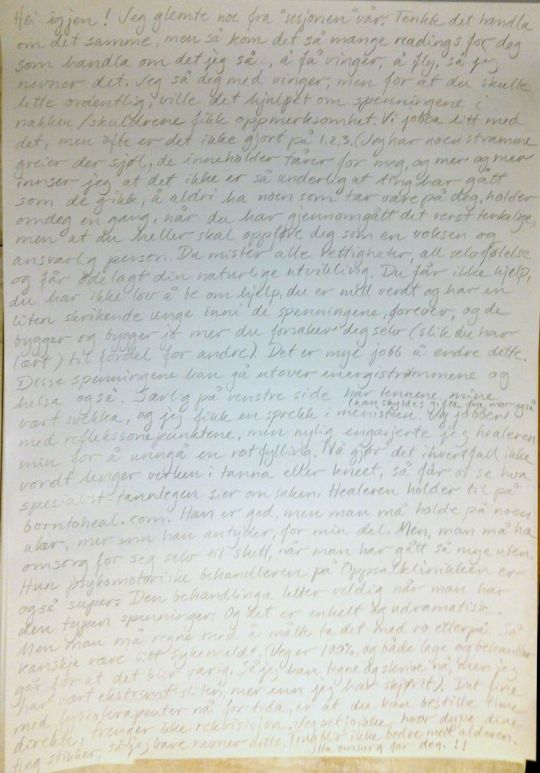 Hei igjen! Jeg glemte noe fra "sesjonen" vår. Tenkte det handla
om det samme, men så kom det så mange readings for deg
som handla om det jeg så.., å få vinger, å fly, så jeg
nevner det. Jeg så deg med vinger, men for at du skulle
lette ordentlig, ville det hjulpet om spenningene i
nakken/skuldrene fikk oppmerksomhet. Vi jobba litt med
det, men ofte er det ikke gjort på 1,2,3. (Jeg har noen stramme
greier der sjøl, de inneholder tårer for meg, og mer og mer
innser jeg at det ikke er så underlig at ting har gått
som de gikk, å aldri ha noen som tar vare på deg, holder
om deg en gang, når du har gjennomgått det verst tenkelige,
men at du heller skal oppføre deg som en voksen og
ansvarlig person. Du mister alle rettigheter, all selvfølelse
og får ødelagt din naturlige utvikling. Du får ikke hjelp,
du har ikke lov å be om hjelp, du er null verdt og har en
liten skrikende unge inni de spenningene, forever, og de
bygger og bygger jo mer du forsaker deg selv (slik du har
lært) til fordel for andre). Det er mye jobb å endre dette.
Disse spenningene kan gå utover energistrømmene og
helsa også. Særlig på venstre side har tennene mine
vært svekka, og jeg fikk en sprekk i menisken. (kan skyldes gifta, fra mor også) Jeg jobber
med reflekssonepunktene, men nylig engasjerte jeg healeren
min for å unngå en rotfylling. Nå gjør det ihvertfall ikke
vondt lenger verken i tanna eller kneet, så får vi se hva
spesialist tannlegen sier om saken. Healeren holder til på
borntoheal.com. Han er god, men man må holde på noen
uker, mer enn han antyder, for min del. Men, man må ha
omsorg for seg selv til slutt, når man har gått så mye uten.
Hun psykomotoriske behandleren på Oppsalklinikken er
også super. Den behandlinga letter veldig når man har
den typen spenninger. Og det er enkelt og udramatisk.
Men man må regne med å måtte ta det med ro etterpå. Så
kanskje være litt sykemeldt. (Jeg er 100%, og både lege og behandler
går for at det blir varig. Så jeg kan tegne og skrive nå, men jeg
har vært ekstremt sliten, mer enn jeg har skjønt). Det fine
med fysioterapeuter nå for tida, er at du kan bestille time
direkte, trenger ikke rekvisisjon. Jeg vet jo ikke hvor dype dine
ting stikker, så jeg bare nevner dette. Ting blir ikke bedre med alderen.
Ha omsorg for deg.!!